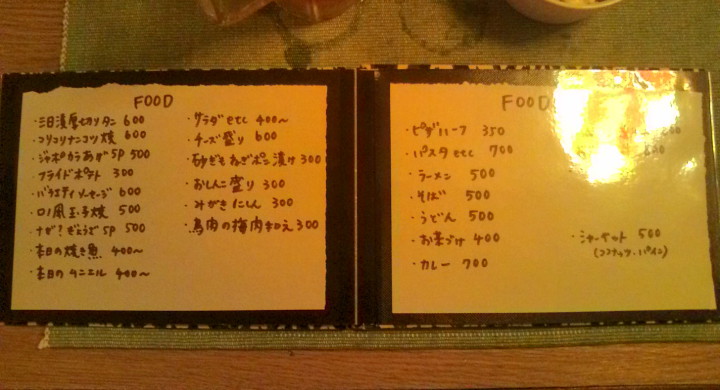 FOOD
・三日漬厚切りタン 600
・コリコリナンコツ焼 600
・ジャポカラあげSP 500
・フライドポテト 300
・バラエティソーセージ 600
・ロノ風玉子焼 500
・ナガ!ぎょうざSP 500
・本日の焼き魚 400〜
・本日のタニエル 400〜
・サラダetc 400〜
・チーズ盛り 600
・砂ぎもねぎポン漬け 300
・おしんこ盛り 300
・みがきにしん 300
・鳥肉の梅肉和え 300
FOOD
・ピザハーフ 350
・パスタetc 700
・ラーメン 500
・そば 500
・うどん 500
・お茶づけ 400
・カレー 700
・シャーベット 500
(ココナッツ・パイン)